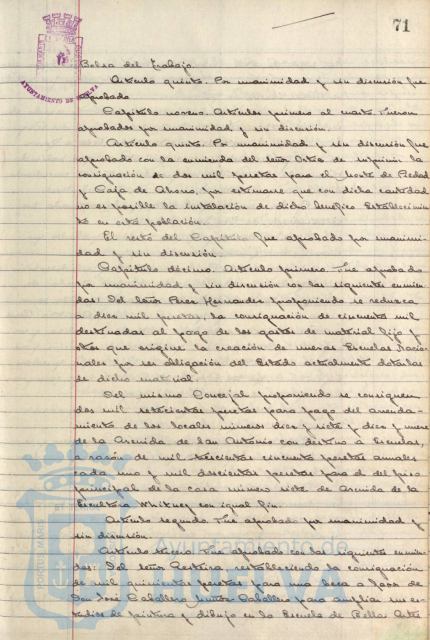 71
AYUNTAMIENTO DE HUELVA
Bolsa del Trabajo.
Artículo quinto. Por unanimidad y sin discusión fue
aprobado
Capítulo noveno. Artículos primero al cuarto. Fueron
aprobados por unanimidad y sin discusión.
Artículo quinto. Por unanimidad y sin discusión fue
aprobado con la enmienda del señor Ortiz de suprimir la
consignación de dos mil pesetas para el Monte de Piedad
y Caja de Ahorro, por estimarse que con dicha cantidad
no es posible la instalación de dicho benéfico Establecimien
to en esta población.
El resto del Capítulo fue aprobado por unanimi
dad y sin discusión.
Capítulo décimo. Artículo primero. Fue aprobado
por unanimidad y sin discusión con las siguientes enmien
das: Del señor Perez Hernandez proponiendo se reduzca
a diez mil pesetas, la consignación de cincuenta mil
destinadas al pago de los gastos de material fijo y
otros que origine la creación de nuevas Escuelas Nacio
nales por ser obligación del Estado actualmente dotarlas
de dicho material.
Del mismo Concejal proponiendo se consignen
dos mil setecientas pesetas para pago del arrenda
miento de los locales números diez y siete y diez y nueve
de la Avenida de San Antonio con destino a Escuelas,
a razón de mil trescientas cincuenta pesetas anuales
cada uno y mil doscientas pesetas para el del piso
principal de la casa número siete de Avenida de la
Escultora Whitney con igual fin.
Artículo segundo. Fue aprobado por unanimidad y
sin discusión.
Artículo tercero. Fue aprobado con las siguientes enmien
das: Del señor restableciendo la consignación
de mil quinientas pesetas para una beca a favor de
Don José Caballero Muñoz-Caballero para ampliar sus es
tudios de pintura y dibujo en la Escuela de Bellas Artes
Ayuntamiento de
HUELVA